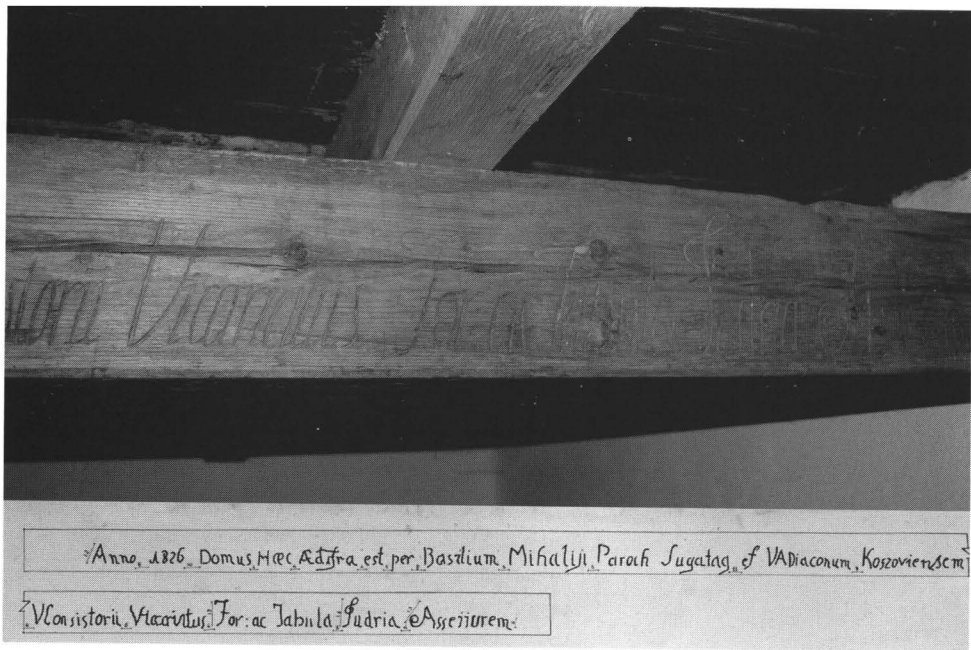 toni Vicariatus For: ac
Anno, 1826. Domus Hæc Ædifra est per, Basilium, Mihaliji, Paroch Sugatag, et VADiaconum, Koszoviensem
VConsistorii, Vicariatus, For: ac Tabula, Judria, Assessorem.